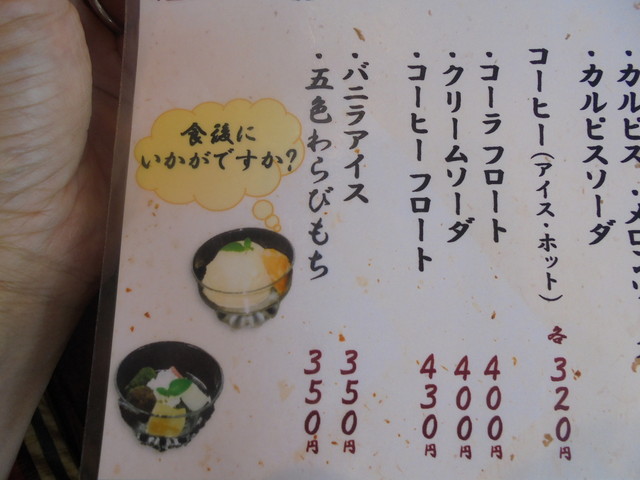 ・カルピス
・カルピスソーダ
コーヒー(アイス・ホット) 各320円
・コーラフロート 400円
・クリームソーダ 400円
・コーヒーフロート 430円
・バニラアイス 350円
・五色わらびもち 350円
食後に
いかがですか?